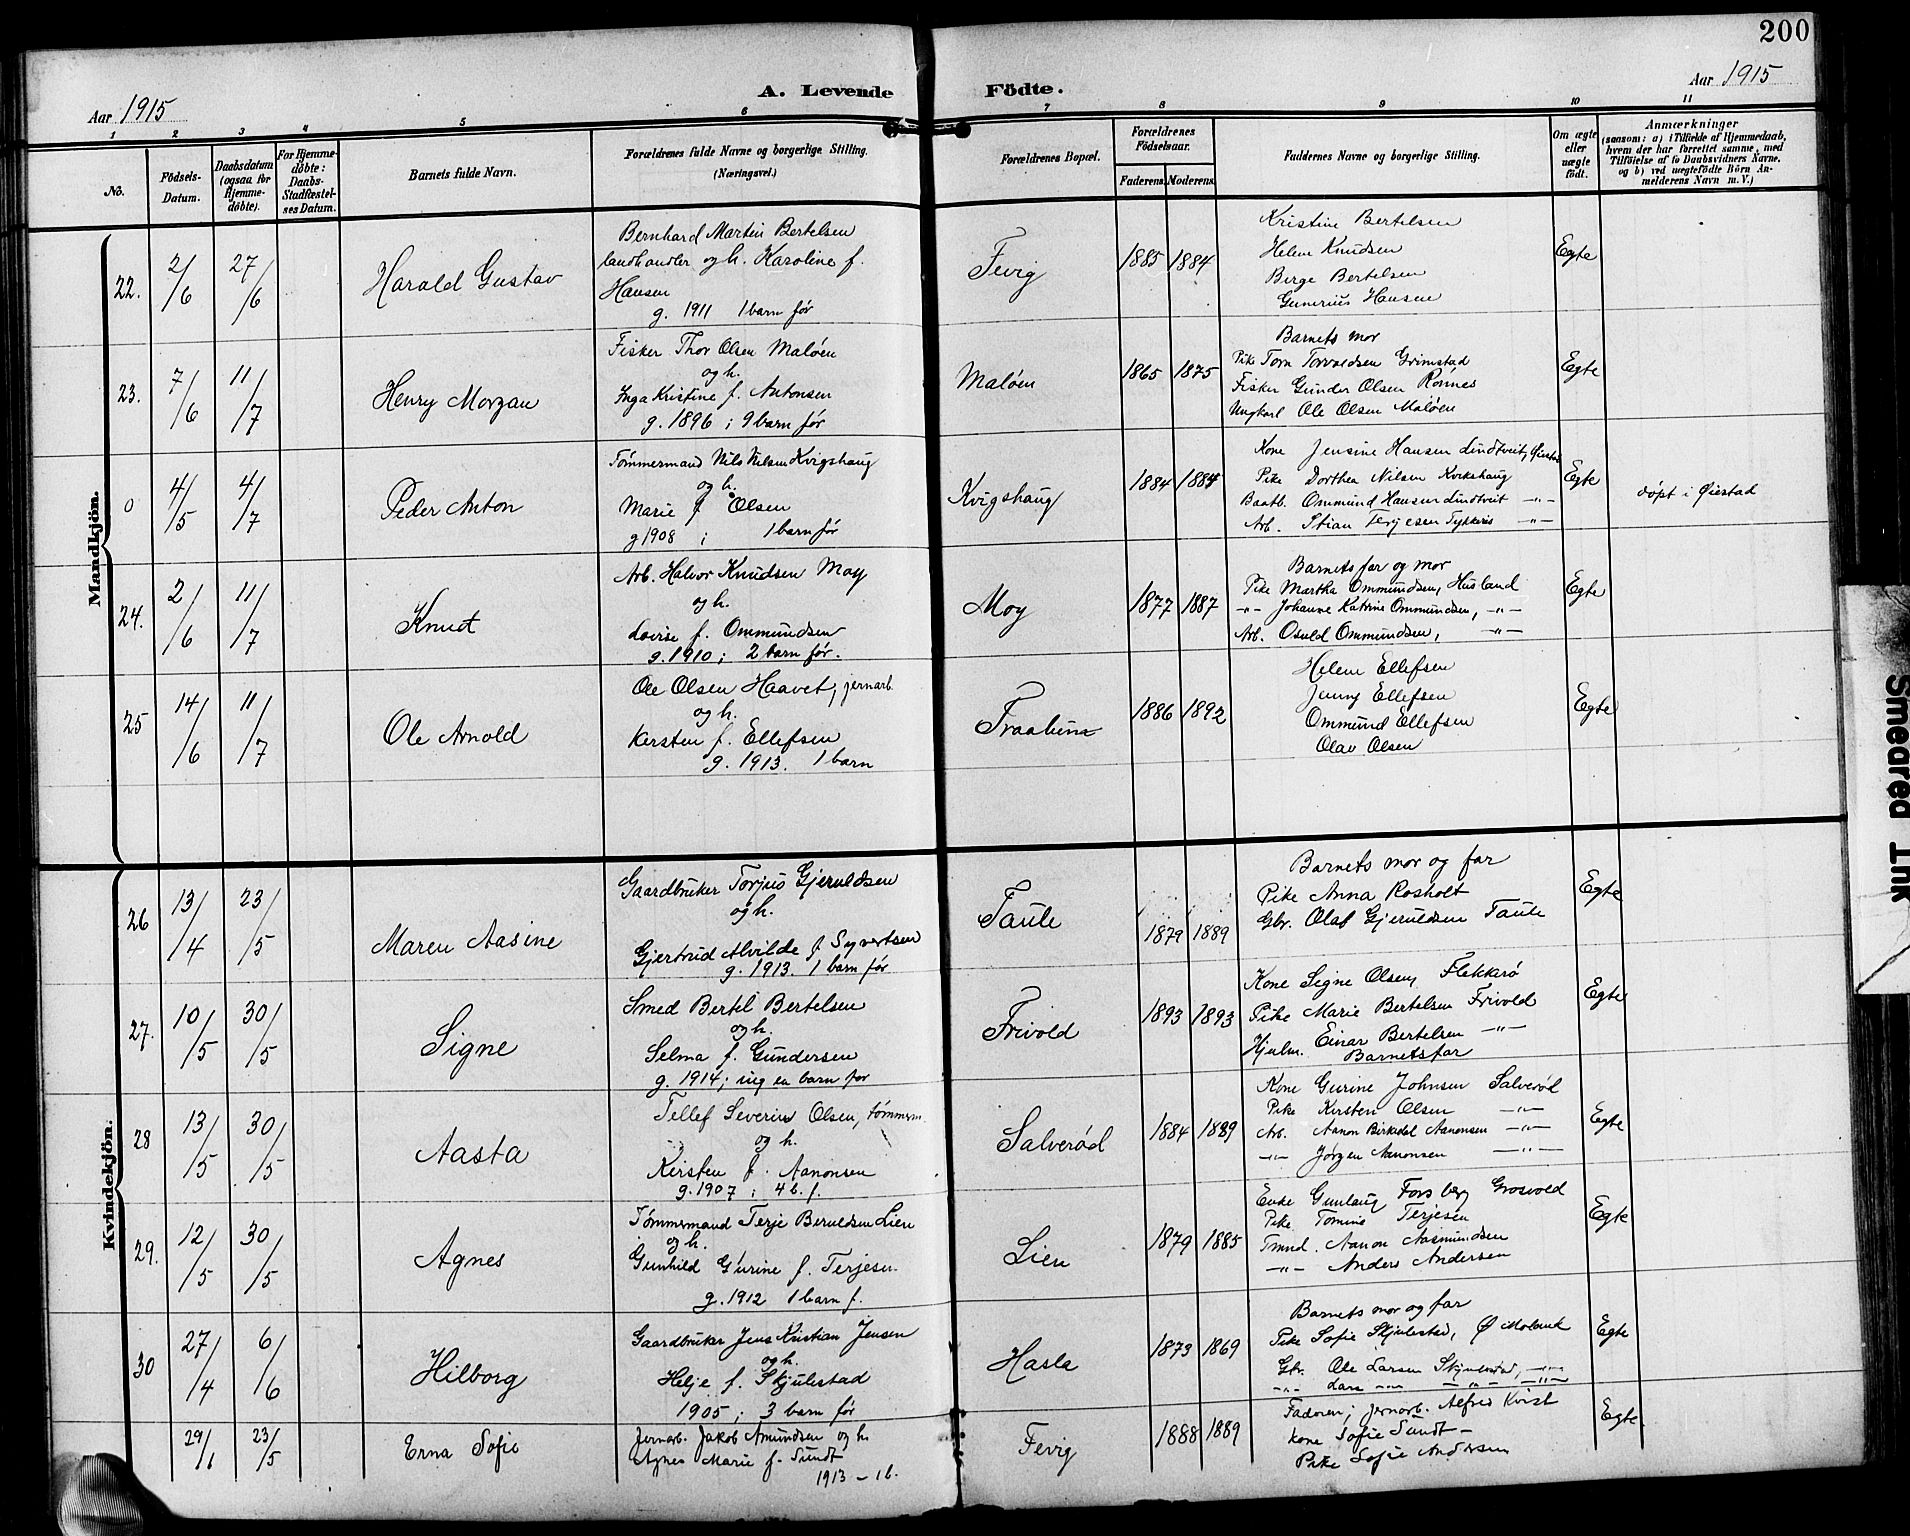 200
Aar 1915
A. Levende
Födte.
Aar 1915
1 2 3 4 5 6 7 8 9 10 11
No.
Födsels-Datum.
Daabsdatum (ogsaa for Hjemme-döbte).
For Hjemme-döbte: Daabs-Stadfæstel-ses Datum.
Barnets fulde Navn.
Forældrenes fulde Navne og borgerlige Stilling.
(Næringsvei.)
Forældrenes Bopæl.
Forældrenes Födselsaar.
Faderens. Moderens.
Faddernes Navne og borgerlige Stilling.
Om ægte eller uægte födt.
Anmærkninger
(saasom: a) i Tilfælde af Hjemmedaab,
hvem der har forrettet samme, med
Tilföielse af to Daabsvidners Navne.
og b) ved uægtefödte Börn An-
melderens Navn m. V.)
Mandkjön.
22. 2/6 27/6 Harald Gustav
Bernhard Martin Bertelsen
landhandler og h. Karoline f.
Hansen
g. 1911 1 barn før
Fevig 1885 1884
Kristine Bertelsen
Helene Knudsen
Berge Bertelsen
Gunerius Hansen
Egte
23. 7/6 11/7 Henry Morgan
Fisker Thor Olsen Maløen
og h.
Inga Kristine f. Antonsen
g. 1896 ; 9 barn før
Maløen 1865 1875
Barnets mor
Pike Tora Torvaldsen Grimstad
Fisker Gunder Olsen Rønnes
Ungkarl Ole Olsen Maløen
Egte
0 4/5 4/7 Peder Anton
Tømmermand Nils Nilsen Kvigshaug
og h.
Marie f. Olsen
g 1908 ; 1 barn før
Kvigshaug 1884 1884
Kone Jensine Hansen Lindtveit, Øiestad
Pike Dorthea Nilsen Kvikshaug
Baatb. Ommund Hansen Lindtveit -"-
Arb. Stian Terjesen -"-
Egte
døpt i Øiestad
24. 2/6 11/7 Knut
Arb. Halvor Knudsen Moy
og h.
Lovise f. Ommundsen
g. 1910 ; 2 barn før.
Moy 1877 1887
Barnets far og mor
Pike Martha Ommundsen, Husland
-"- Johanne Katrine Ommundsen, -"-
Arb. Osuld Ommundsen, -"-
Egte
25 14/6 11/7 Ole Arnold
Ole Olsen Haavet, jernarb.
og h.
Kersten f. Ellefsen
g. 1913. 1 barn
1886 1892
Helene Ellefsen
Jenny Ellefsen
Ommund Ellefsen
Olav Olsen
Egte
Kvindekjön.
26 13/4 23/5 Maren Aasine
Gaardbruker Torjus Gjeruldsen
og h.
Gjertrud Alvilde f. Syvertsen
g. 1913. 1 barn før
Taule 1879 1889
Barnets mor og far
Pike Anna Rosholt
Gbr. Olaf Gjeruldsen Taule
Egte
27. 10/5 30/5 Signe
Smed Bertel Bertelsen
og h.
Selma f. Gundersen
g. 1914 ; ing en barn før
Frivold 1893 1893
Kone Signe Olsen, Flekkerø
Pike Marie Bertelsen Frivold
Hjulm. Einar Bertelsen -"-
Barnets far
Egte
28 13/5 30/5 Aasta
Tellef Severin Olsen, tømmerm.
og h.
Kirsten f. Aanonsen
g. 1907 ; 4 b. f.
Salverød 1884 1889
Kone Gurine Johnsen Salverød
Pike Kirsten Olsen -"-
Arb. Aanon Birkedal Aanonsen -"-
-"- Jørgen Aanonsen -"-
Egte
29. 12/5 30/5 Agnes
Tømmermand Terje Beruldsen Lien
og h.
Gunhild Gurine f. Terjesen
g. 1912 1 barn f.
Lien 1879 1885
Enke Gunlaug Forsberg Grosvold
Pike Tomine Terjesen
Tmnd. Aanon Aasmundsen
-"- Anders Andersen
Egte
30 27/4 6/6 Hilborg
Gaardbruker Jens Kristian Jensen
og h.
Helje f. Skjulestad
1905 ; 3 barn før
Hasla 1873 1869
Barnets mor og far
Pike Sofie Skjulestad, Ø Moland
Gbr. Ole Larsen Skjulestad, -"-
-"- Lars -"- -"- -"-
Egte
29/1 23/5 Erna Sofie
Jernarb. Jakob Amundsen og h.
Agnes Marie f. Sundt
1913 - 1 b.
Fevig 1888 1889
Faderen ; jernarb. Alfred Kvist
Kone Sofie Sundt -
Pike Sofie Andersen
Egte
Smeared Ink